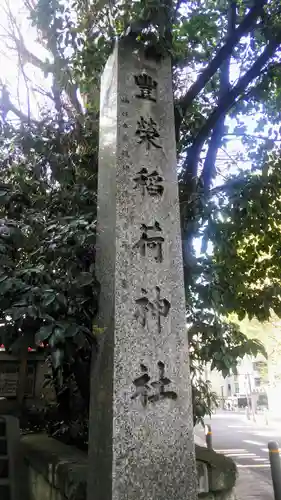 豊榮稲荷神社